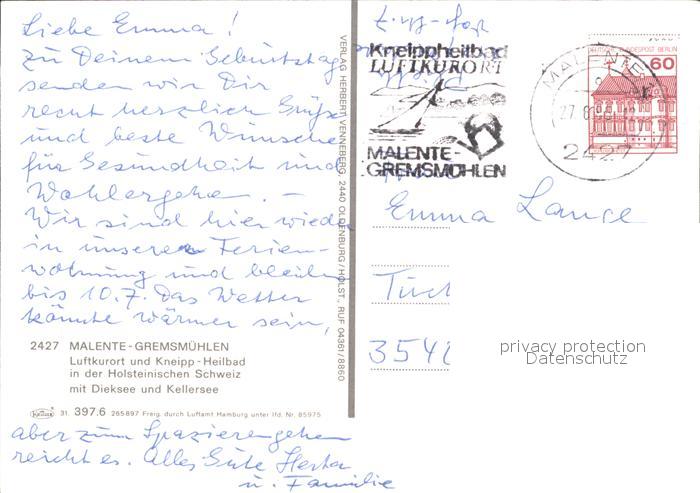 Liebe Emma!
Zu Deinem Geburtstag
senden wir Dir
recht herzlich Grüße
und beste Wünsche
für Gesundheit und
Wohlergehen. —
Wir sind hier wieder
in unserer Ferien-
wohnung und bleiben
bis 10.7. Das Wetter
könnte wärmer sein,
2427 MALENTE-GREMSMÜHLEN
Luftkurort und Kneipp-Heilbad
in der Holsteinischen Schweiz
mit Dieksee und Kellersee
31. 397.6 265897 Freig. durch Luftamt Hamburg unter lfd. Nr. 85975
aber zum Spazierengehen
reicht es. Alles Gute Herta
u. Familie
VERLAG HERBERT VENNEBERG, 2440 OLDENBURG/HOLST., RUF 04361/8860
Kneippheilbad
LUFTKURORT
MALENTE-
GREMSMÜHLEN
MALENTE
2427
DEUTSCHE BUNDESPOST BERLIN
60
Emma Lange
3542
privacy protection
Datenschutz